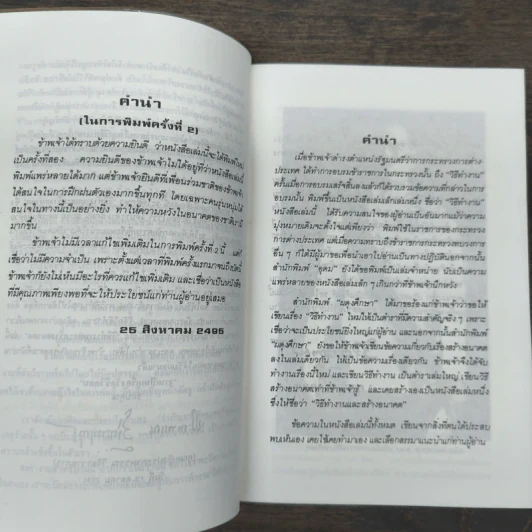 คำนำ
(ในการพิมพ์ครั้งที่ 2)
ข้าพเจ้าได้ทราบด้วยความยินดี ว่าหนังสือเล่มนี้จะได้พิมพ์ใหม่
เป็นครั้งที่สอง ความยินดีของข้าพเจ้าไม่ได้อยู่ที่ว่าหนังสือเล่มนี้
พิมพ์แพร่หลายได้มาก แต่ข้าพเจ้ายินดีที่เพื่อนร่วมชาติของข้าพเจ้า
ได้สนใจในการฝึกฝนตัวเองมากขึ้นทุกที โดยเฉพาะคนรุ่นหนุ่มได้
สนใจในทางนี้เป็นอย่างยิ่ง ทำให้ความหวังในอนาคตของชาติเรามี
มากขึ้น
ข้าพเจ้าไม่มีเวลาแก้ไขเพิ่มเติมในการพิมพ์ครั้งที่ ๒ นี้ แต่ก็
เชื่อว่าไม่มีความจำเป็น เพราะตั้งแต่เวลาที่พิมพ์ครั้งแรกมาจนถึงบัดนี้
ข้าพเจ้าก็ยังไม่เห็นมีอะไรที่ควรแก้ไขเพิ่มเติม และเชื่อว่าเป็นหนังสือ
ที่มีคุณภาพเพียงพอที่จะให้ประโยชน์แก่ท่านผู้อ่านอยู่เสมอ
25 สิงหาคม 2495
คำนำ
เมื่อข้าพเจ้าดำรงตำแหน่งรัฐมนตรีว่าการกระทรวงการต่าง
ประเทศ ได้ทำการอบรมข้าราชการในกระทรวงนั้น ถึง "วิธีทำงาน"
ครั้นเมื่อการอบรมเสร็จสิ้นลงแล้วก็ได้รวบรวมข้อความที่กล่าวในการ
อบรมนั้น พิมพ์ขึ้นเป็นหนังสือเล่มเล็กเล่มหนึ่ง ชื่อว่า "วิธีทำงาน"
หนังสือเล่มนี้ ได้รับความสนใจของผู้อ่านเป็นอันมากแม้ว่าความ
มุ่งหมายเดิมจะตั้งใจแต่เพียงว่า พิมพ์ใช้ในราชการของกระทรวง
การต่างประเทศ แต่เมื่อความทราบถึงข้าราชการกระทรวงทบวงการ
อื่น ๆ ก็ได้มีผู้มาขอเพื่อนำเอาไปอ่านเป็นทางปฏิบัติ นอกจากนั้น
สำนักพิมพ์ "อุดม" ยังได้ขอพิมพ์เป็นเล่มจำหน่าย นับเป็นความ
แพร่หลายของหนังสือเล่มเล็ก ๆ เกินกว่าที่ข้าพเจ้านึกหวัง
สำนักพิมพ์ "ผดุงศึกษา" ได้มาขอร้องแก่ข้าพเจ้าว่าขอให้
เขียนเรื่อง "วิธีทำงาน" ใหม่ให้เป็นตำราที่มีความสำคัญจริง ๆ เพราะ
เชื่อว่าจะเป็นประโยชน์ยิ่งใหญ่แก่ผู้อ่าน และนอกจากนั้นสำนักพิมพ์
"ผดุงศึกษา" ยังขอให้ข้าพเจ้าเขียนข้อความเกี่ยวกับเรื่องสร้างอนาคต
ลงในเล่มเดียวกัน ให้เป็นข้อความเรื่องเดียวกัน ข้าพเจ้าจึงได้จับ
ทำงานเรื่องนี้ใหม่ และเขียนวิธีทำงาน เป็นตำราเล่มใหญ่ เขียนวิธี
สร้างอนาคตเท่าที่ข้าพเจ้ารู้ และเคยสร้างเองเป็นหนังสือเล่มหนึ่ง
ซึ่งให้ชื่อว่า "วิธีทำงานและสร้างอนาคต"
ข้อความในหนังสือเล่มนี้ทั้งหมด เขียนจากสิ่งที่ตนได้ประสบ
พบเห็นเอง เคยใช้เคยทำมาเอง และเลือกสรรมาแนะนำแก่ท่านผู้อ่าน